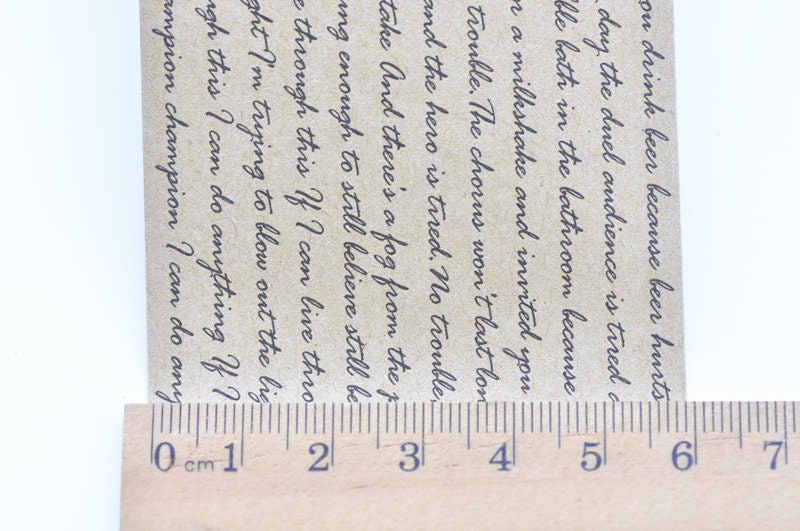 ou drink beer because beer hurts
day the duel audience is tired
bath in the bathroom because
a milkshake and invited you
trouble. The chorus won't last lon
and the hero is tired. No trouble,
take And there's a fog from the p
ng enough to still believe still be
e through this If I can live thro
ght I'm trying to blow out the lig
ugh this I can do anything If I
ampion champion I can do any
0 cm 1 2 3 4 5 6 7